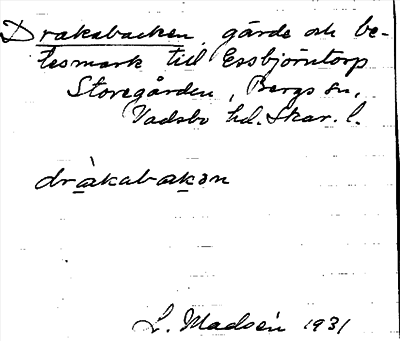 Drakabacken, gärde och be-
tesmark till Essbjörntorp
Storegården, Bergs sn,
Vadsbo hd. Skar. l.
dràkabakən
L. Madsén 1931